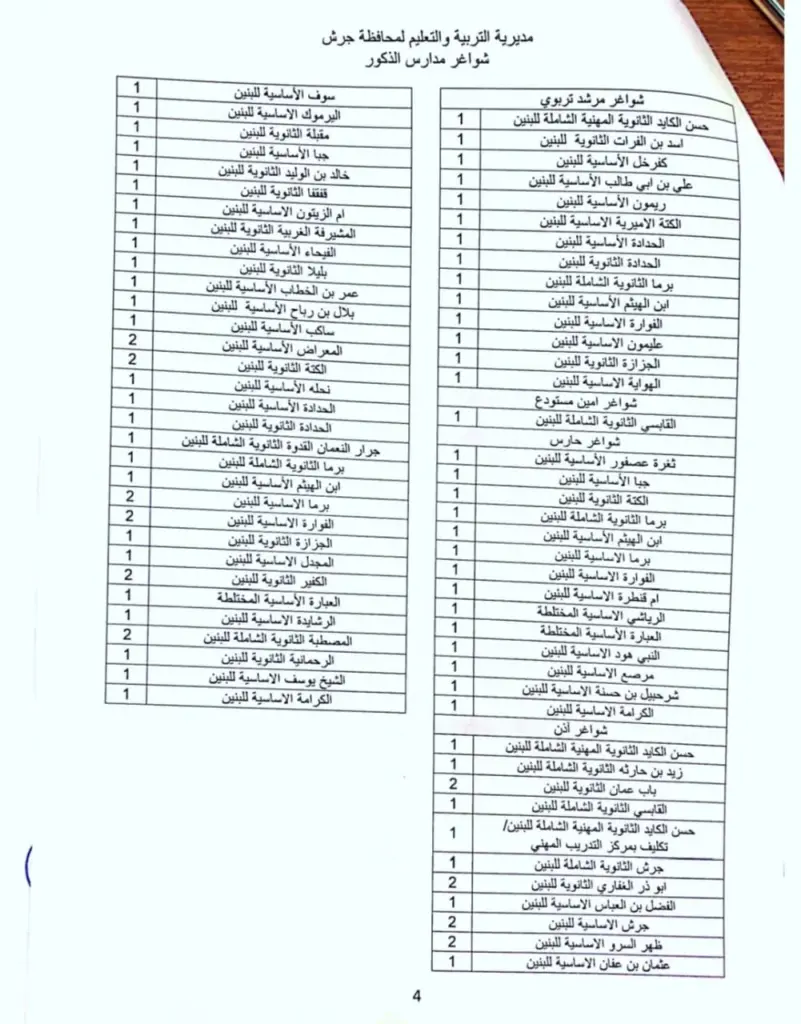 مديرية التربية والتعليم لمحافظة جرش
شواغر مدارس الذكور
شواغر مرشد تربوي
حسن الكايد الثانوية المهنية الشاملة للبنين 1
اسد بن الفرات الثانوية للبنين 1
كفرخل الأساسية للبنين 1
علي بن ابي طالب الأساسية للبنين 1
ريمون الأساسية للبنين 1
الكتة الاميرية الاساسية للبنين 1
الحدادة الأساسية للبنين 1
الحدادة الثانوية للبنين 1
برما الثانوية الشاملة للبنين 1
ابن الهيثم الأساسية للبنين 1
الفوارة الاساسية للبنين 1
عليمون الاساسية للبنين 1
الجزازة الثانوية للبنين 1
الهواية الاساسية للبنين 1
شواغر امين مستودع
القابسي الثانوية الشاملة للبنين 1
شواغر حارس
ثغرة عصفور الأساسية للبنين 1
جبا الأساسية للبنين 1
الكتة الثانوية للبنين 1
برما الثانوية الشاملة للبنين 1
ابن الهيثم الأساسية للبنين 1
برما الاساسية للبنين 1
الفوارة الاساسية للبنين 1
ام قنطرة الاساسية للبنين 1
الرياشي الاساسية المختلطة 1
العبارة الأساسية المختلطة 1
النبي هود الاساسية للبنين 1
مرصع الاساسية للبنين 1
شرحبيل بن حسنة الاساسية للبنين 1
الكرامة الاساسية للبنين 1
شواغر آذن
حسن الكايد الثانوية المهنية الشاملة للبنين 1
زيد بن حارثه الثانوية الشاملة للبنين 1
باب عمان الثانوية للبنين 2
القابسي الثانوية الشاملة للبنين 1
حسن الكايد الثانوية المهنية الشاملة للبنين/
تكليف بمركز التدريب المهني 1
جرش الثانوية الشاملة للبنين 1
ابو ذر الغفاري الثانوية للبنين 2
الفضل بن العباس الاساسية للبنين 1
جرش الاساسية للبنين 2
ظهر السرو الاساسية للبنين 2
عثمان بن عفان الاساسية للبنين 1
سوف الأساسية للبنين 1
اليرموك الاساسية للبنين 1
مقبلة الثانوية للبنين 1
جبا الأساسية للبنين 1
خالد بن الوليد الثانوية للبنين 1
قفقفا الثانوية للبنين 1
ام الزيتون الاساسية للبنين 1
المشيرفة الغربية الثانوية للبنين 1
الفيحاء الأساسية للبنين 1
بليلا الثانوية للبنين 1
عمر بن الخطاب الأساسية للبنين 1
بلال بن رباح الأساسية للبنين 1
ساكب الأساسية للبنين 1
المعراض الأساسية للبنين 2
الكتة الثانوية للبنين 2
نحله الأساسية للبنين 1
الحدادة الأساسية للبنين 1
الحدادة الثانوية للبنين 1
جرار النعمان القدوة الثانوية الشاملة للبنين 1
برما الثانوية الشاملة للبنين 1
ابن الهيثم الأساسية للبنين 1
برما الاساسية للبنين 2
الفوارة الاساسية للبنين 2
الجزازة الثانوية للبنين 1
المجدل الاساسية للبنين 1
الكفير الثانوية للبنين 2
العبارة الأساسية المختلطة 1
الرشايدة الاساسية للبنين 1
المصطبة الثانوية الشاملة للبنين 2
الرحمانية الثانوية للبنين 1
الشيخ يوسف الاساسية للبنين 1
الكرامة الاساسية للبنين 1
4